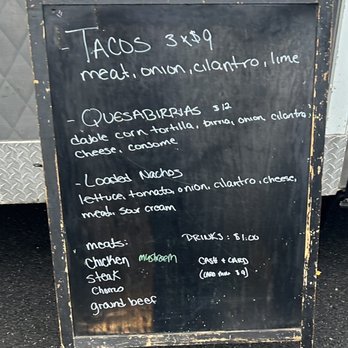 - TACOS 3x$9
meat, onion, cilantro, lime
- QUESABIRRIAS $12
dable corn tortilla, birria, onion, cilantro,
cheese, consome
- Loaded Nachos
lettuce, tomato, onion, cilantro, cheese,
meat, sour cream
meats: DRINKS: $1.00
Chicken mushroom CASH + CARD
steak
Chorizo
ground beef